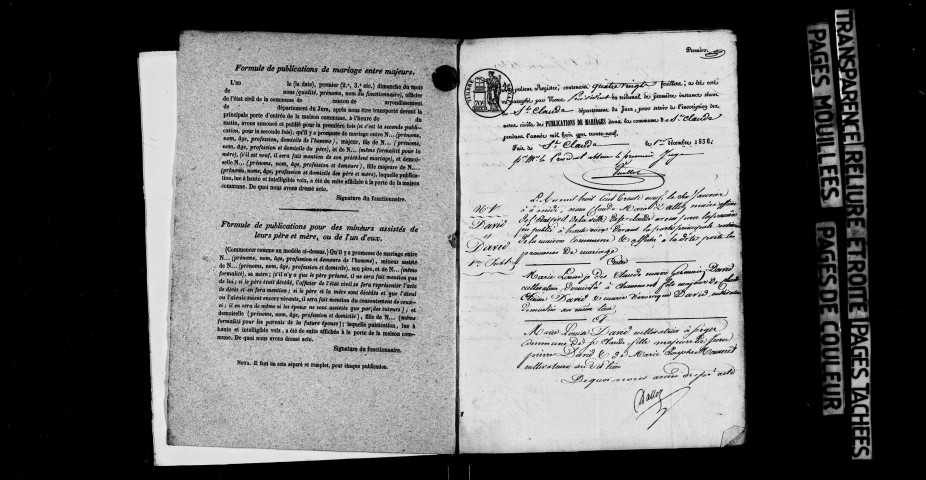 Formule de publications de mariage entre majeurs.
L'an le (la date), premier (2.e, 3.e etc.) dimanche du mois
de nous (qualité, prénoms, nom du fonctionnaire), officier
de l'état civil de la commune de canton de arrondissement
de département du Jura, après nous être transporté devant la
principale porte d'entrée de la maison commune, à l'heure de
du matin, avons annoncé et publié pour la première fois (si c'est la seconde publi-
cation, pour la seconde fois), qu'il y a promesse de mariage entre N... (prénoms,
nom, âge, profession et domicile de l'homme), majeur, fils de N... (prénoms,
nom, âge, profession et domicile du père), et de N... (même formalité pour la
mère), (s'il est veuf, il sera fait mention de son précédent mariage), et demoi-
selle (prénoms, nom, âge, profession et demeure), fille majeure de N...
(prénoms, nom, âge, profession et domicile des père et mère), laquelle publica-
tion, lue à haute et intelligible voix, a été de suite affichée à la porte de la maison
commune. De quoi nous avons dressé acte.
Signature du fonctionnaire.
Formule de publications pour des mineurs assistés de
leurs père et mère, ou de l'un d'eux.
(Commencer comme au modèle ci-dessus.) Qu'il y a promesse de mariage entre
N... (prénoms, nom, âge, profession et demeure de l'homme), mineur assisté
de N... (prénoms, nom, âge, profession et domicile), son père, et de N... (même
formalité), sa mère; (s'il n'y a que le père présent, il ne sera fait mention que
de lui; si le père était décédé, l'officier de l'état civil se fera représenter l'acte
de décès et en fera mention; si le père et la mère sont décédés et que l'aïeul
ou l'aïeule soient encore vivants, il sera fait mention du consentement de ceux-
ci; il en sera de même si les époux ne sont assistés que par des tuteurs); et
demoiselle (prénoms, nom, âge, profession et domicile), fille de N... (même
formalité pour les parents de la future épouse); laquelle publication, lue à
haute et intelligible voix, a été de suite affichée à la porte de la maison com-
mune. De quoi nous avons dressé acte.
Signature du fonctionnaire.
NOTA. Il faut un acte séparé et complet, pour chaque publication.
Premier
présent Registre, contenant quatre vingt feuillets, a été coté
paraphé par Nous Président du tribunal de première instance séant
St Claude département du Jura, pour servir à l'inscription des
civile des PUBLICATIONS DE MARIAGES dans la commune de St Claude
pendant l'année mil huit cent trente-neuf.
Fait à St Claude le 1er décembre 1838.
N.o 1
David
et
David
1re Publ.
L'An mil huit cent trente neuf le six Janvier
à midi, nous Claude Marcel Dalloz maire officier
de l'état civil de la ville de St Claude avons pour la première
fois publié à haute voix devant la porte principale
de la maison commune & affiché à la dite porte la
promesse de mariage
Entre
Marie Louis des Claude Germain David
cultivateur domicilié à Chaumont fils majeur de
David & Véronique David cultivateurs
domiciliés au même lieu
Et
Marie Louise David cultivatrice à
commune de St Claude fille majeure de
pierre David & de Marie Josephte
cultivateurs au dit lieu
De quoi nous avons dressé acte
Dalloz
TRANSPARENCE RELIURE ETROITE PAGES TACHEES
PAGES MOUILLEES PAGES DE COULEUR